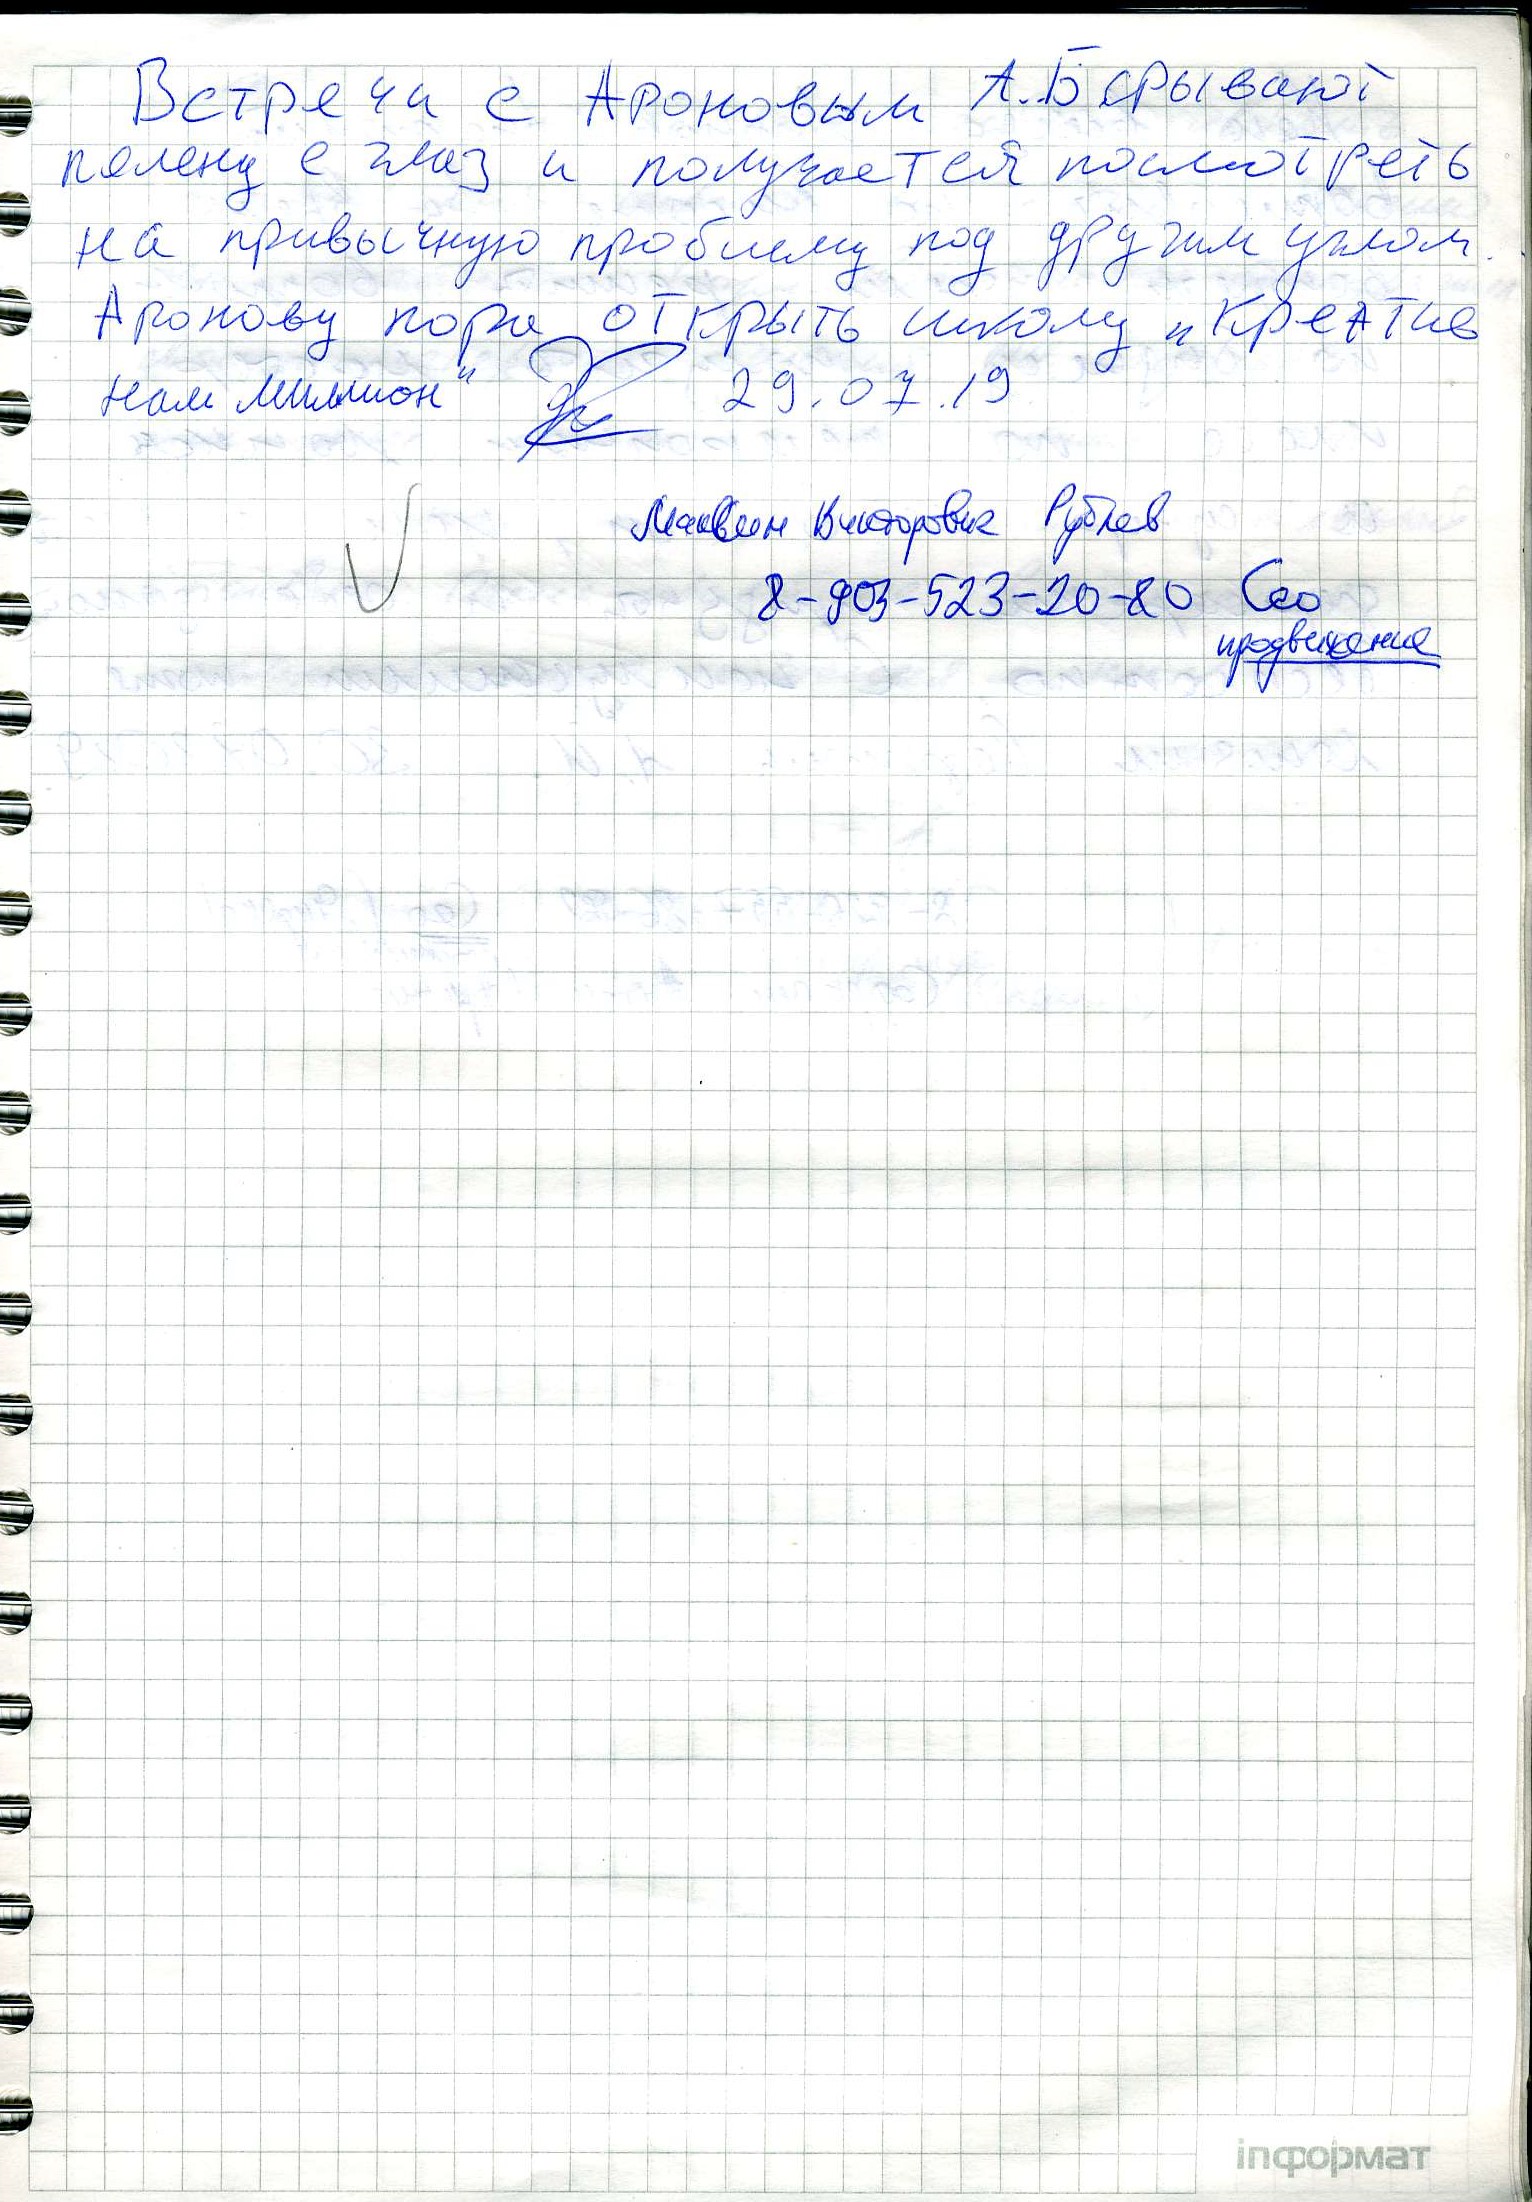 Встреча с Ароновым А.Б срывают
пелену с глаз и получается посмотреть
на привычную проблему под другим углом.
Аронову пора открыть школу „Креатив
нам миллион“ 29.07.19
Викторович Рублев
8-903-523-20-80 Сео
продвижение
inформат